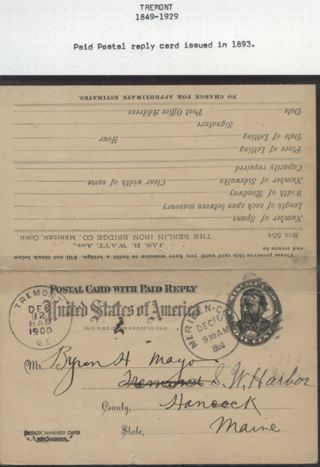 TREMONT
1849-1929
Paid Postal reply card issued in 1893.
Please preserve this card until you have occasion to build a bridge, fill out blanks
and return to
JAS. R. WATT, Agt.,
Box 554 THE BERLIN IRON BRIDGE CO. MERIDEN, CONN.
Number of Spans
Length of each span between masonry
Width of Roadway
Number of Sidewalks Clear width of same
Capacity required
Place of Letting
Date of Letting Hour
Signature
Date Post Office Address
NO CHARGE FOR APPROXIMATE ESTIMATES.
POSTAL CARD WITH PAID REPLY
United States of America
THIS SIDE ADDRESS ONLY
TREMONT
DEC
12
HAM
1900
ME.
MERIDEN-CONN.
DEC 10
9 30AM
Mr. Byron H Mayo
Tremont S. W. Harbor
County, Hancock
State, Maine
DETACH ANNEXED CARD